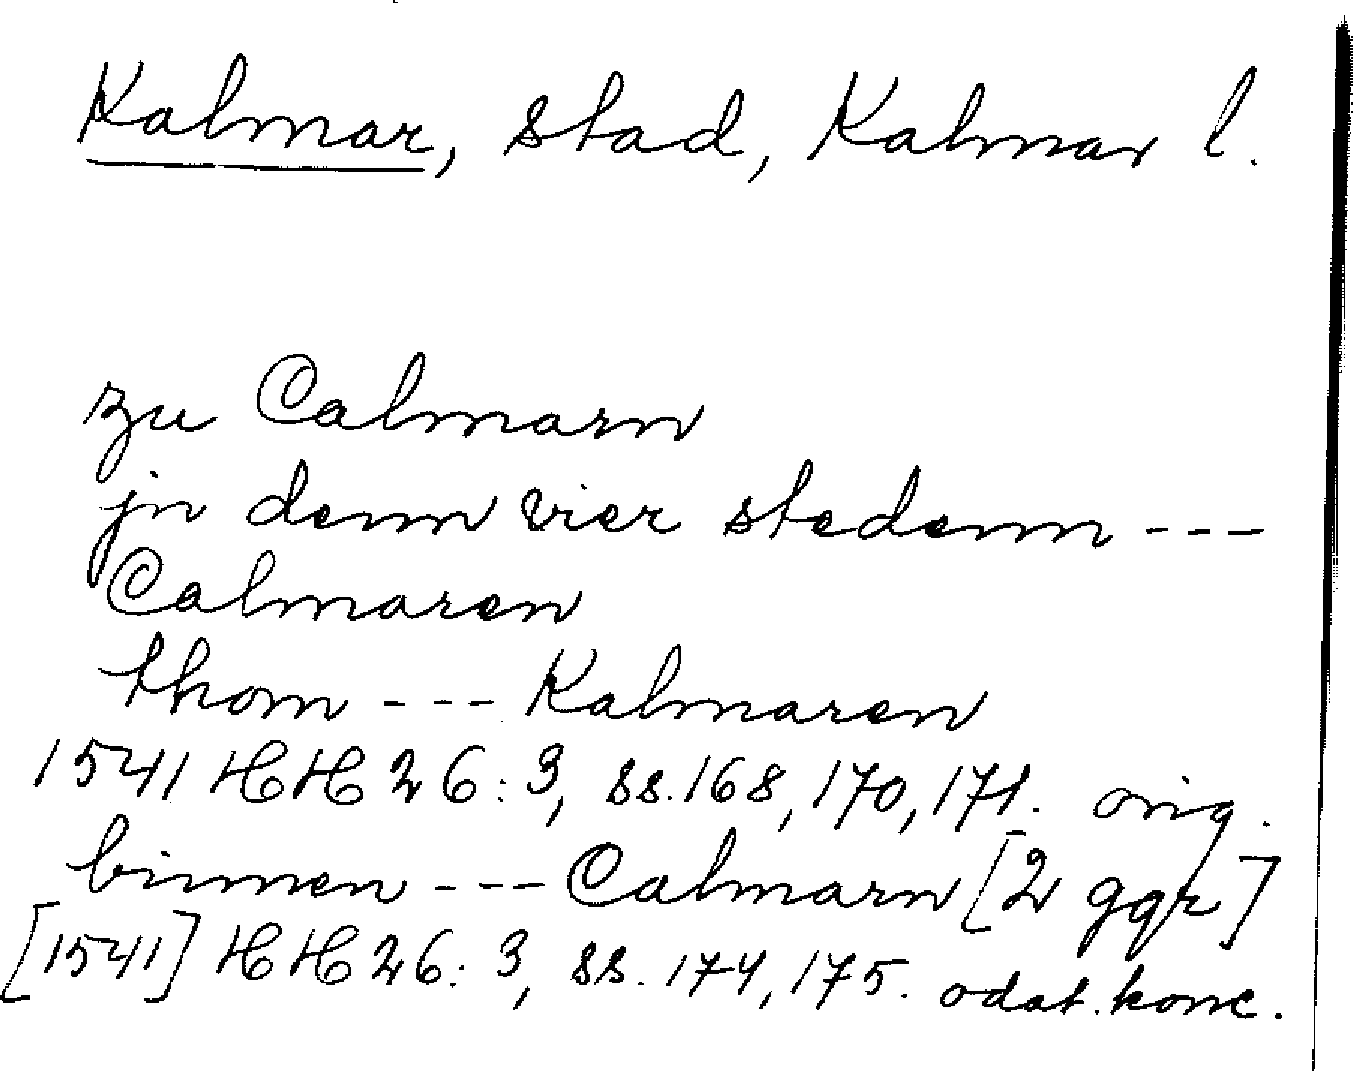 Kalmar, stad, Kalmar l.
zu Calmarn
jn denn vier stedenn ---
Calmaren
thom --- Kalmaren
1541 HH 26:3, ss. 168, 170, 171. orig.
binnen --- Calmarn [2 ggr]
[1541] HH 26:3, ss. 174, 175. odat. konc.